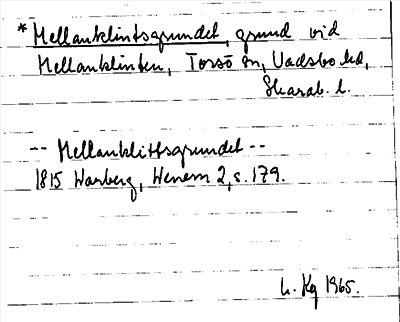 * Mellanklintsgrundet, grund vid
Mellanklinten, Torsö sn, Vadsbo hd,
Skarab. l.
-- Mellanklittsgrundet --
1815 Warberg, Wenern 2, s. 179.
L. Kg 1965.